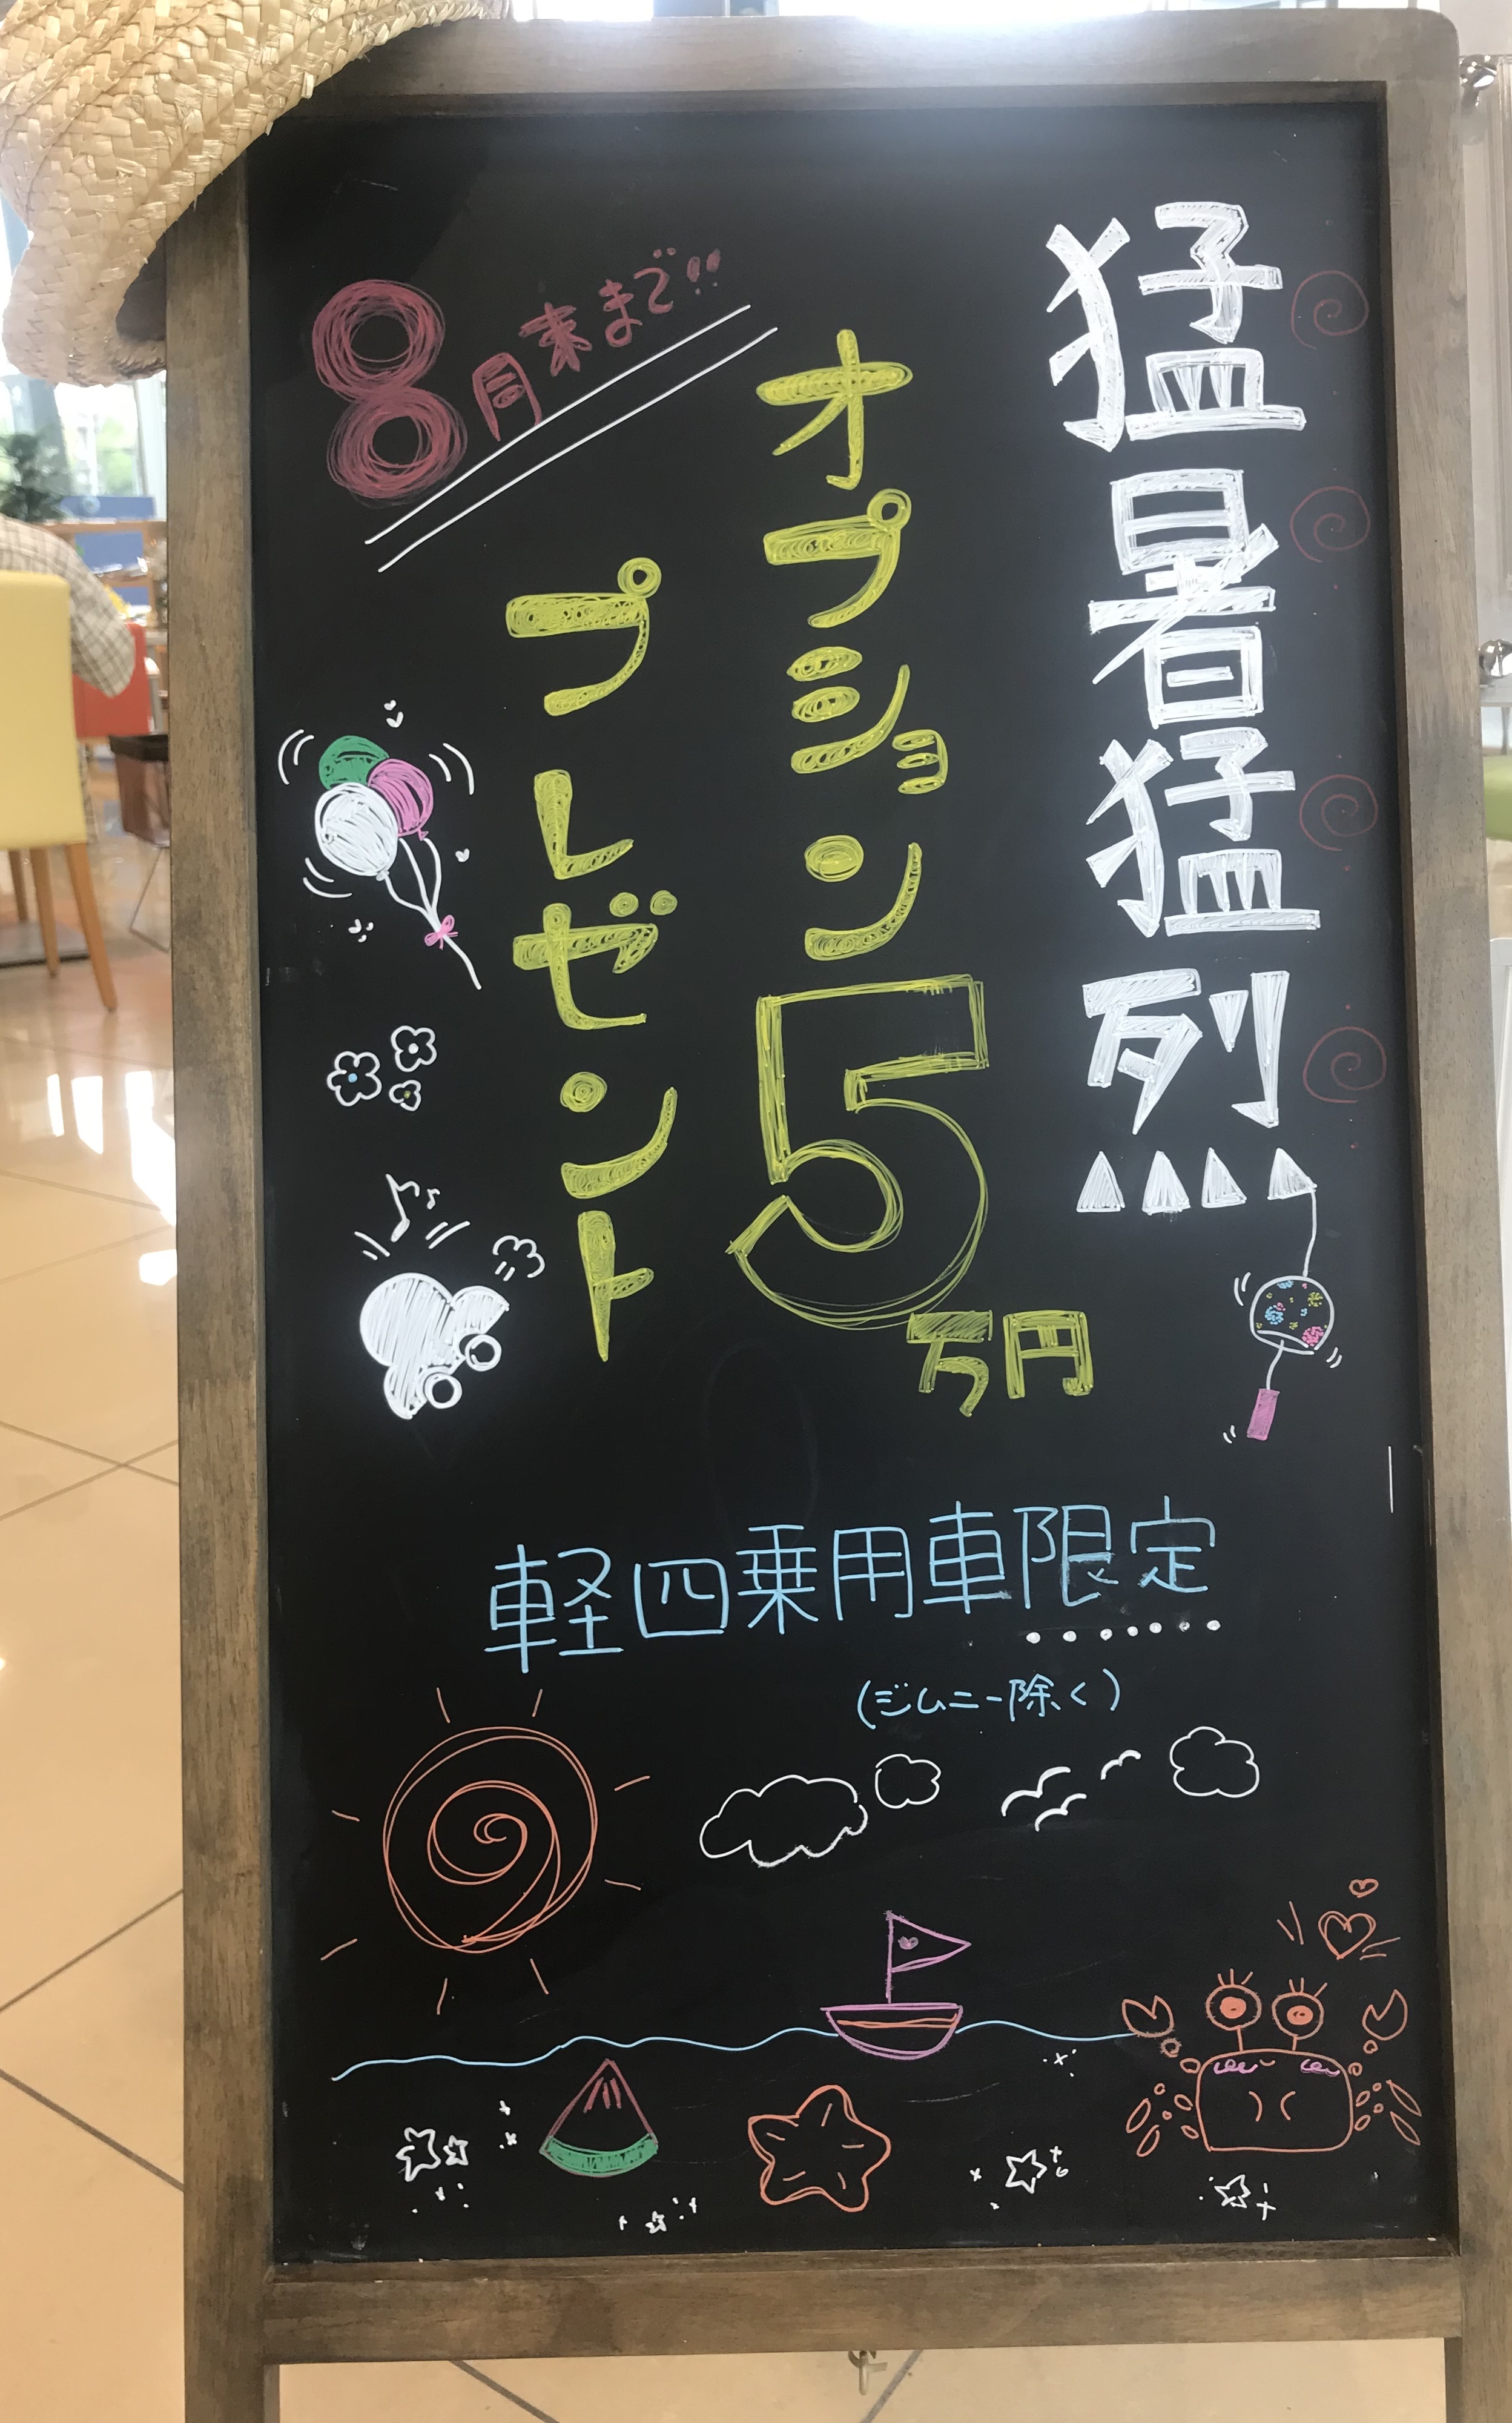 猛暑猛烈
オプション5万円
プレゼント
8月末まで!!
軽四乗用車限定
(ジムニー除く)